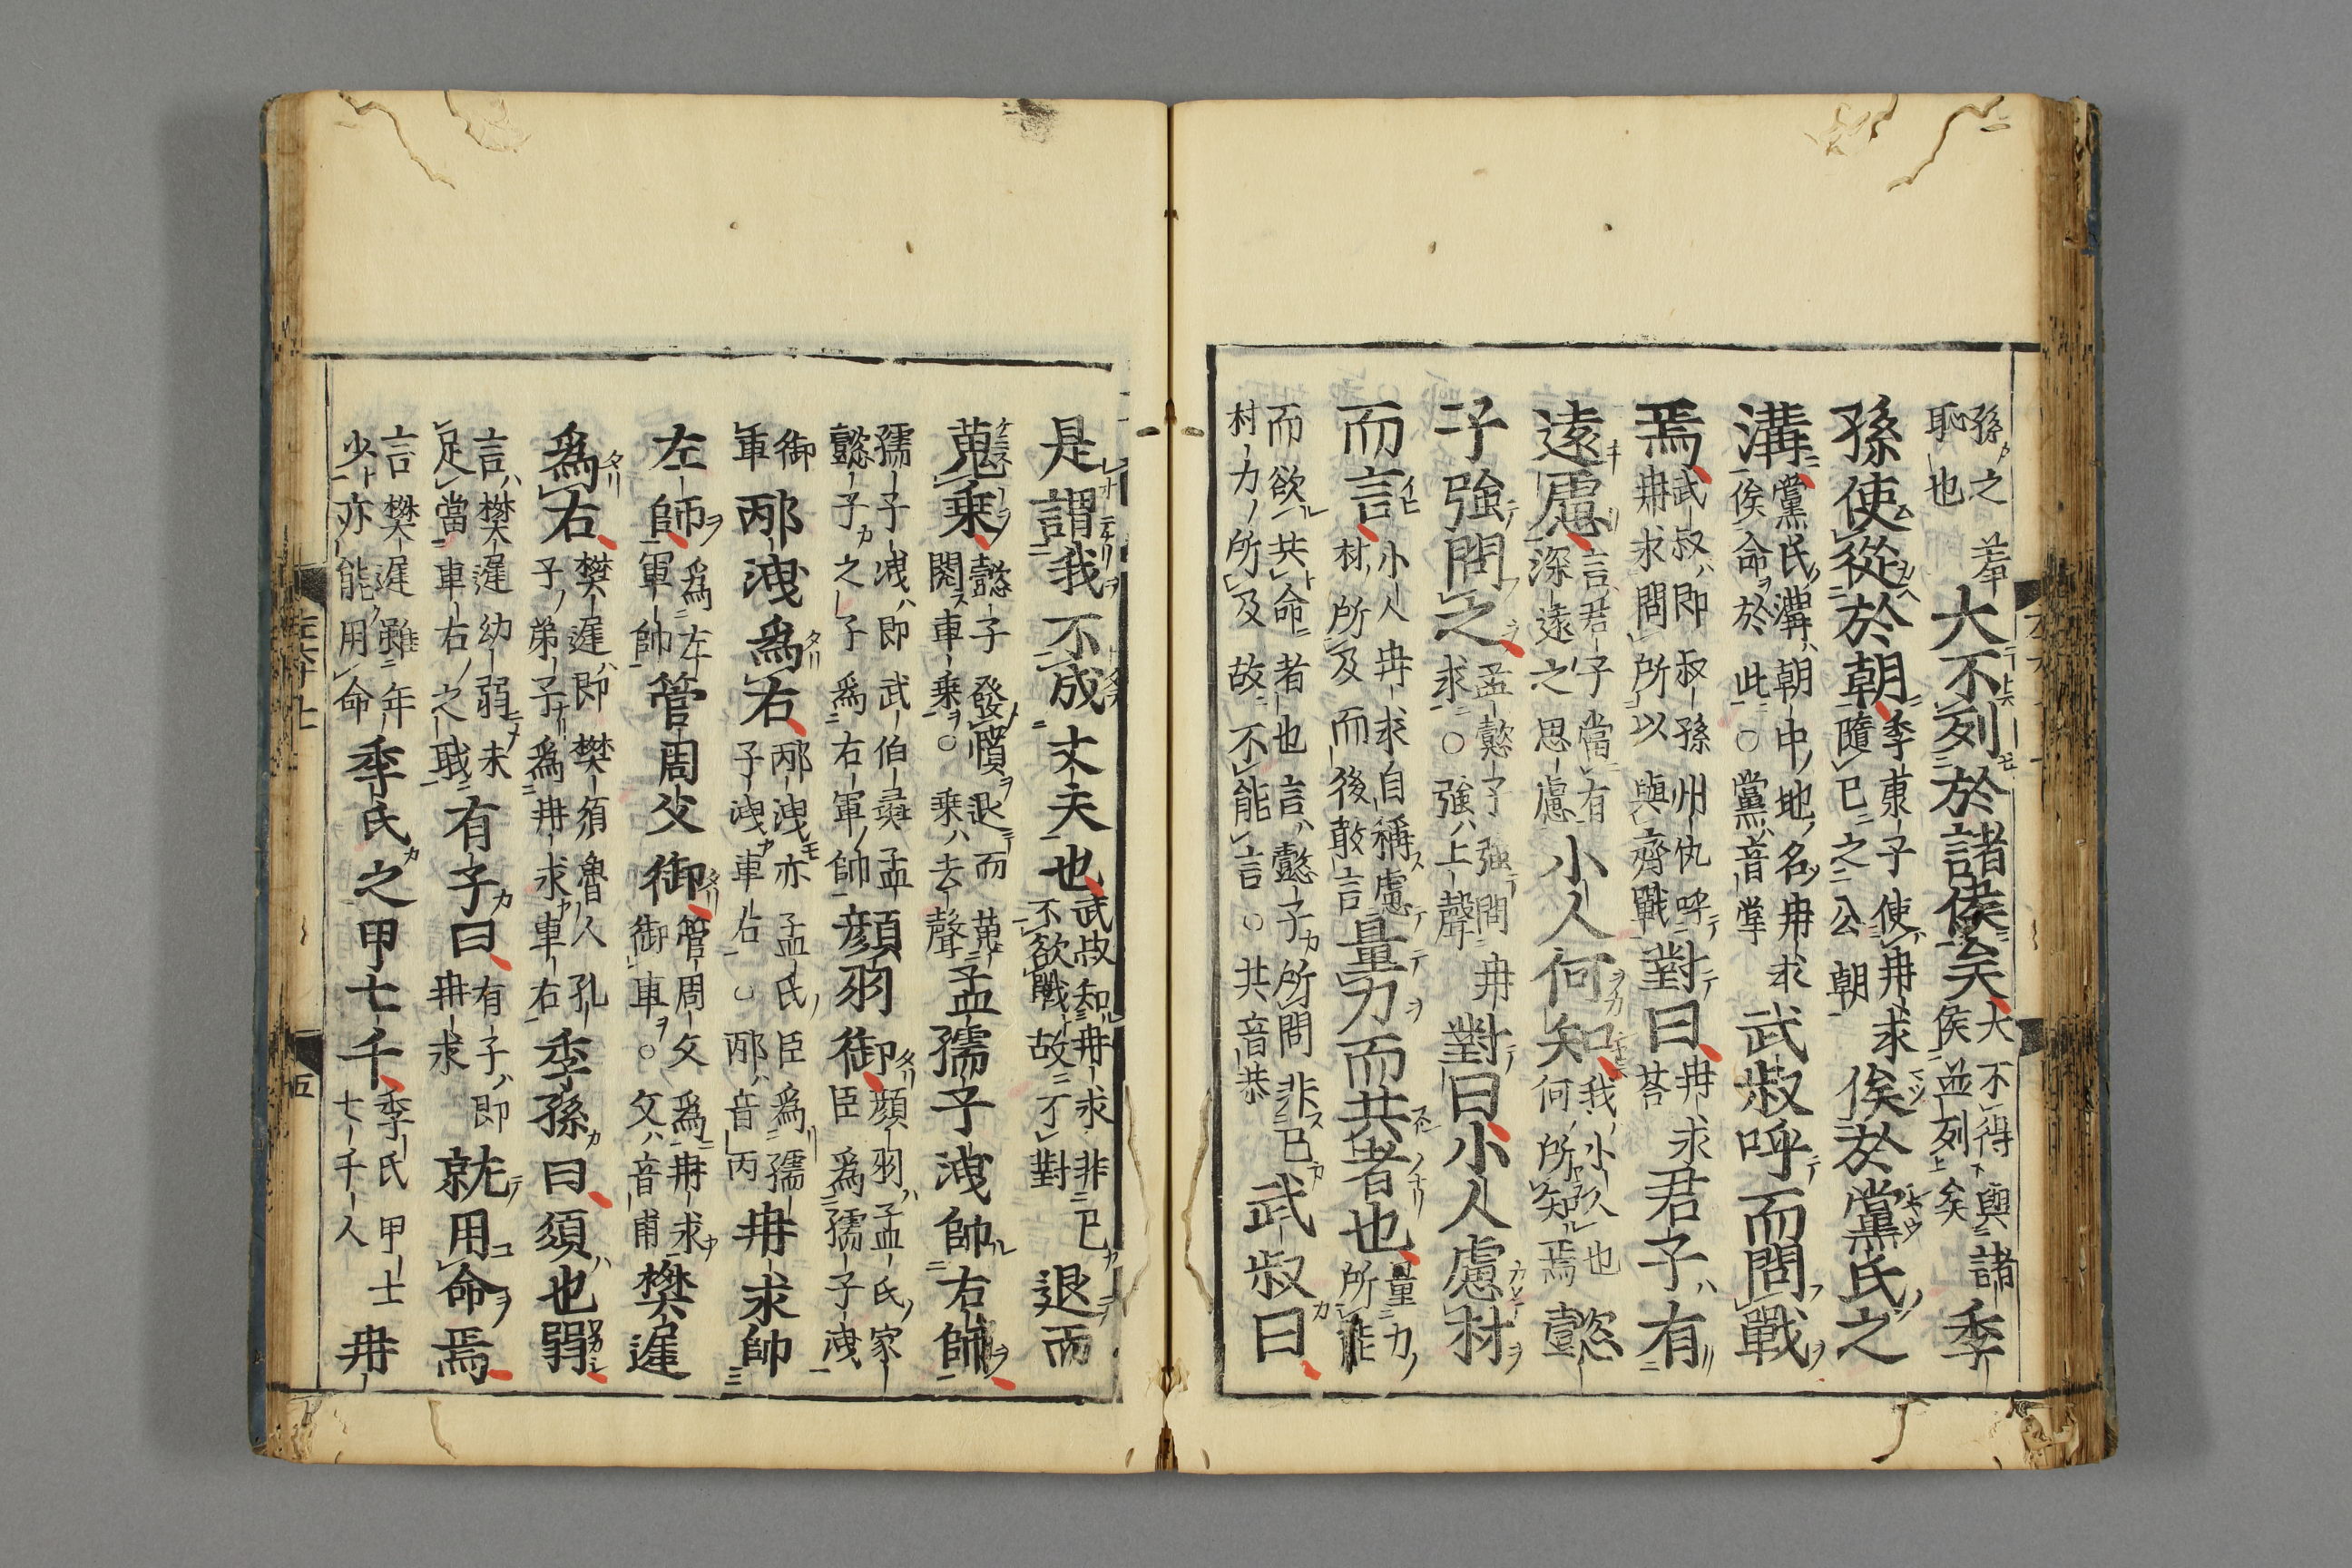 孫之羞恥也大不列於諸侯矣大不得與諸侯並列矣季
孫使從於朝季康子使冉求隨己之公朝俟於黨氏之
溝黨氏溝朝中地名冉求俟命於此○黨音掌武叔呼而問戰
焉武叔即叔孫州仇呼冉求問所以與齊戰對曰冉求荅君子有
遠慮言君子當有深遠之思慮小人何知我小人也何所知焉懿
子強問之孟懿子強問冉求○強上聲對曰小人慮材
而言小人冉求自稱慮材所及而後敢言量力而共者也量力所能
而欲共命者也言懿子所問非己材力所及故不能言○共音恭武叔曰
是謂我不成丈夫也武叔知冉求非己不欲戰故不對退而
蒐乘懿子發憤退而閱車乘○乘去聲蒐孟孺子洩帥右師
孺子洩即武伯彘孟懿子之子為右軍帥顏羽御顏羽孟氏家臣為孺子洩
御車邴洩為右邴洩亦孟氏臣為孺子洩車右○邴音丙冉求帥
左師為左軍帥管周父御管周父為冉求御車○父音甫樊遲
為右樊遲即樊須魯人孔子弟子為冉求車右季孫曰須也弱
言樊遲幼弱未足當車右之職有子曰有子即冉求就用命焉
言樊遲雖年少亦能用命季氏之甲七千季氏甲士七千人冉
左傳 七
五